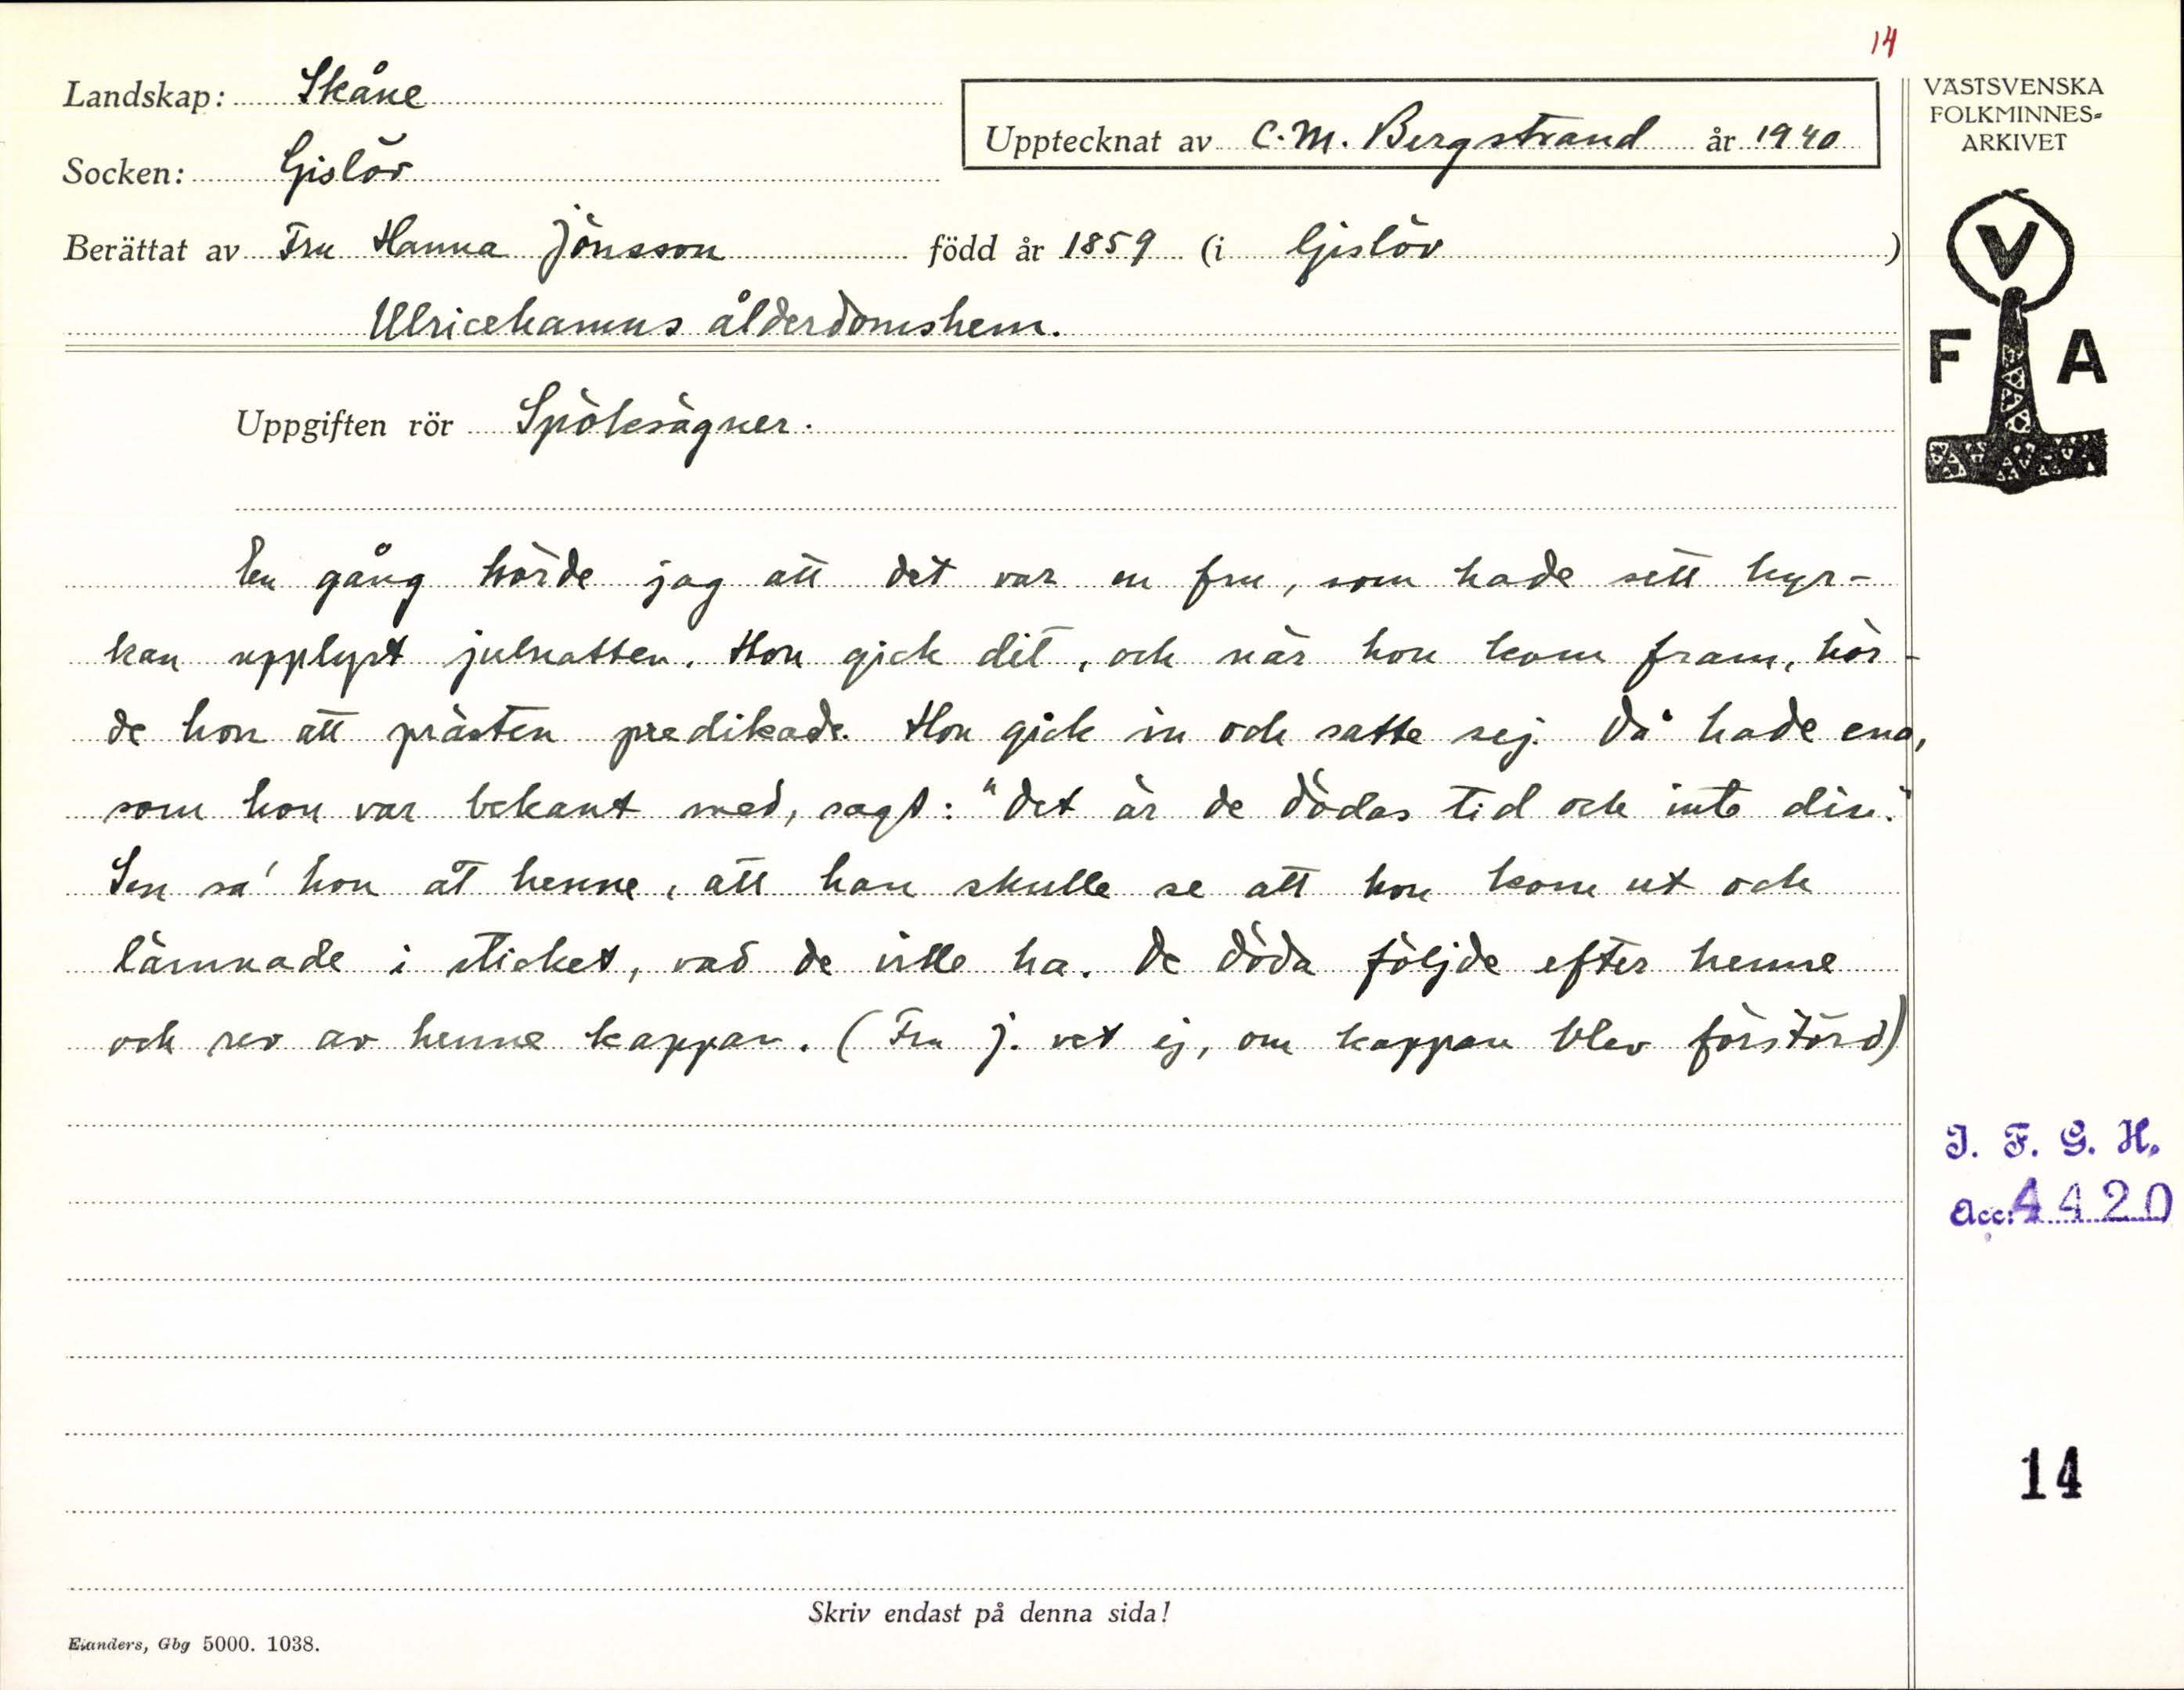 14
Landskap: Skåne
Upptecknat av C. M. Bergstrand år 1940
VÄSTSVENSKA
FOLKMINNES-
ARKIVET
Socken: Gislöv
Berättat av Fru Hanna Jönsson född år 1859 (i Gislöv )
Ulricehamns ålderdomshem.
V
F A
Uppgiften rör Spöksägner.
En gång hörde jag att det var en fru, som hade sett kyr-
kan upplyst julnatten. Hon gick dit, och när hon kom fram, hör-
de hon att prästen predikade. Hon gick in och satte sej. Då hade ena,
som hon var bekant med, sagt: "Det är de dödas tid och inte din."
Sen sa' hon åt henne, att hon skulle se att hon kom ut och
lämnade i sticket, vad de ville ha. De döda följde efter henne
och rev av henne kappan. (Fru J. vet ej, om kappan blev förstörd)
I. F. G. H.
Acc. 4420
14
Skriv endast på denna sida!
Elanders, Gbg 5000. 1038.